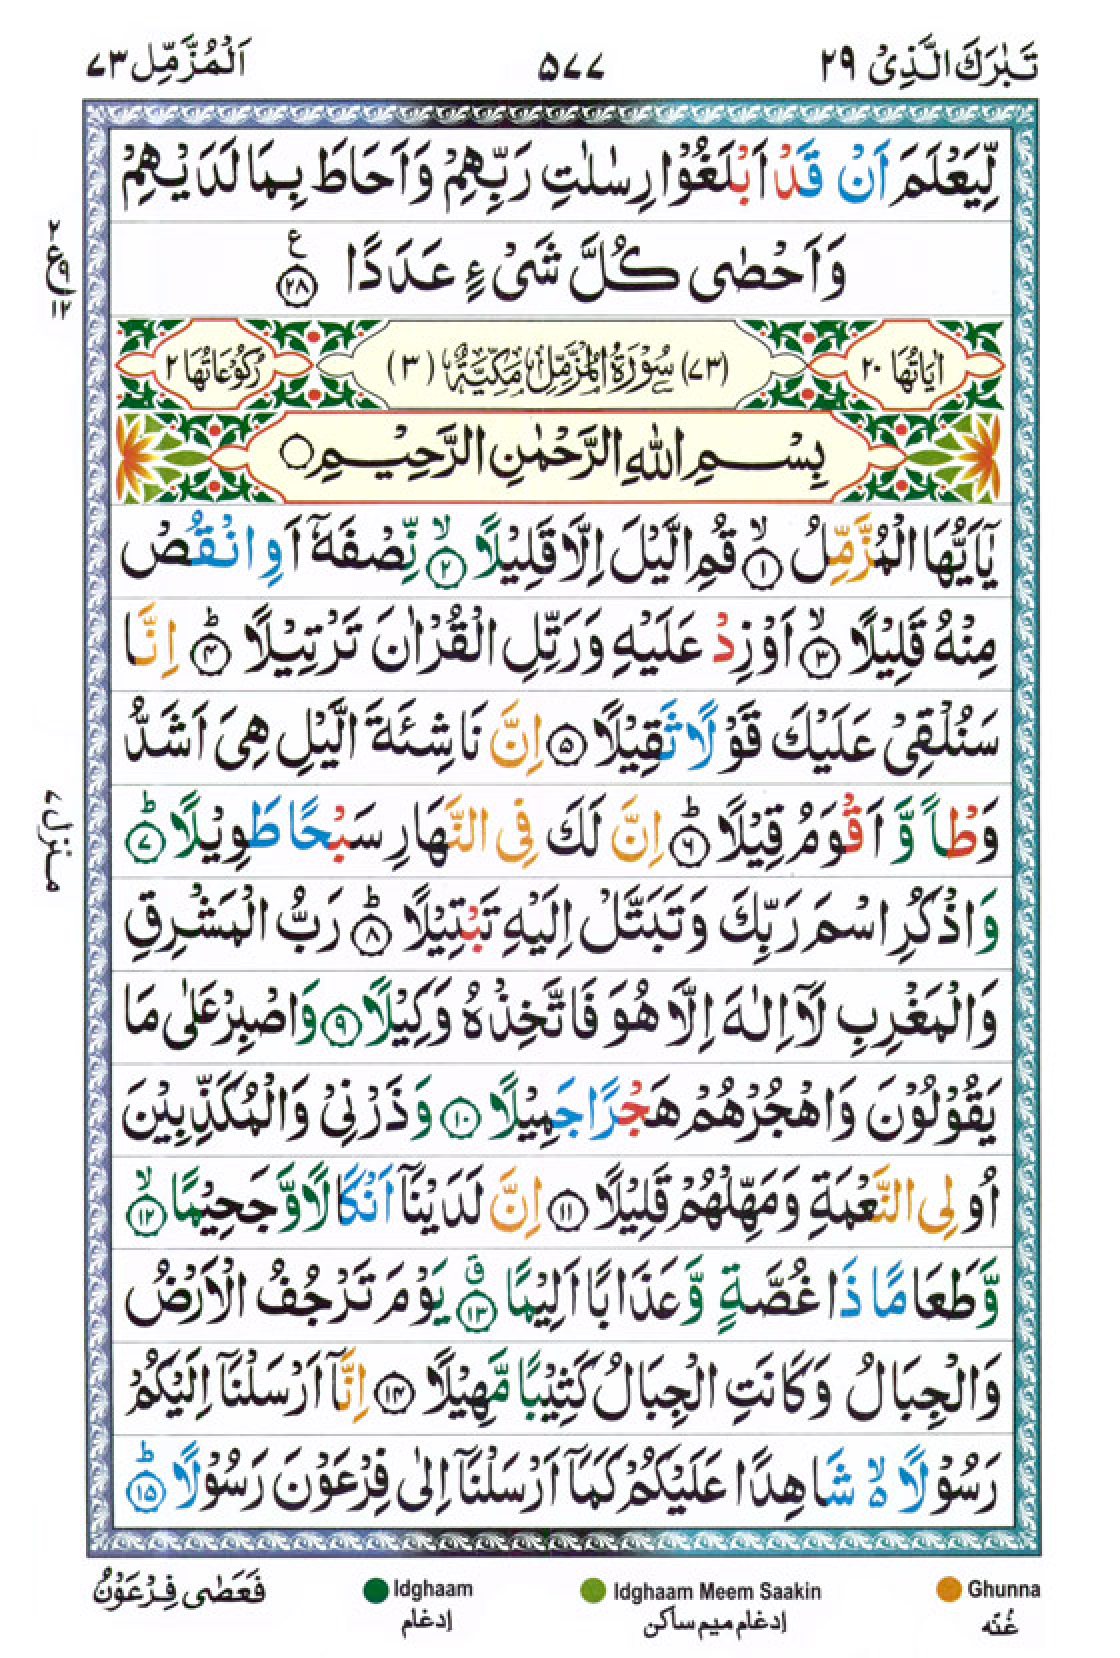 تَبٰرَكَ الَّذِیْ ۲۹
۵۷۷
اَلْمُزَّمِّل ۷۳
لِّیَعْلَمَ اَنْ قَدْ اَبْلَغُوْا رِسٰلٰتِ رَبِّهِمْ وَاَحَاطَ بِمَا لَدَیْهِمْ
وَاَحْصٰی كُلَّ شَیْءٍ عَدَدًا ۲۸ ع
۲ ع ۹ ۱۲
اٰیَاتُهَا ۲۰
(۷۳) سُوْرَةُ الْمُزَّمِّلِ مَكِّیَّةٌ (۳)
رُكُوْعَاتُهَا ۲
بِسْمِ اللّٰهِ الرَّحْمٰنِ الرَّحِیْمِ
یٰۤاَیُّهَا الْمُزَّمِّلُ ۙ۱ قُمِ الَّیْلَ اِلَّا قَلِیْلًا ۙ۲ نِّصْفَهٗۤ اَوِ انْقُصْ
مِنْهُ قَلِیْلًا ۙ۳ اَوْ زِدْ عَلَیْهِ وَرَتِّلِ الْقُرْاٰنَ تَرْتِیْلًا ؕ۴ اِنَّا
سَنُلْقِیْ عَلَیْكَ قَوْلًا ثَقِیْلًا ۵ اِنَّ نَاشِئَةَ الَّیْلِ هِیَ اَشَدُّ
وَطْاً وَّ اَقْوَمُ قِیْلًا ؕ۶ اِنَّ لَكَ فِی النَّهَارِ سَبْحًا طَوِیْلًا ؕ۷
وَاذْكُرِ اسْمَ رَبِّكَ وَتَبَتَّلْ اِلَیْهِ تَبْتِیْلًا ؕ۸ رَبُّ الْمَشْرِقِ
وَالْمَغْرِبِ لَاۤ اِلٰهَ اِلَّا هُوَ فَاتَّخِذْهُ وَكِیْلًا ۹ وَاصْبِرْ عَلٰی مَا
یَقُوْلُوْنَ وَاهْجُرْهُمْ هَجْرًا جَمِیْلًا ۱۰ وَذَرْنِیْ وَالْمُكَذِّبِیْنَ
اُولِی النَّعْمَةِ وَمَهِّلْهُمْ قَلِیْلًا ۱۱ اِنَّ لَدَیْنَاۤ اَنْكَالًا وَّجَحِیْمًا ۙ۱۲
وَّطَعَامًا ذَا غُصَّةٍ وَّعَذَابًا اَلِیْمًا ۗ۱۳ یَوْمَ تَرْجُفُ الْاَرْضُ
وَالْجِبَالُ وَكَانَتِ الْجِبَالُ كَثِیْبًا مَّهِیْلًا ۱۴ اِنَّاۤ اَرْسَلْنَاۤ اِلَیْكُمْ
رَسُوْلًا ۙ۬ شَاهِدًا عَلَیْكُمْ كَمَاۤ اَرْسَلْنَاۤ اِلٰی فِرْعَوْنَ رَسُوْلًا ؕ۱۵
منزل ۷
Ghunna
غُنّه
Idghaam Meem Saakin
إدغام میم ساکن
Idghaam
إدغام
فَعَصٰی فِرْعَوْنُ